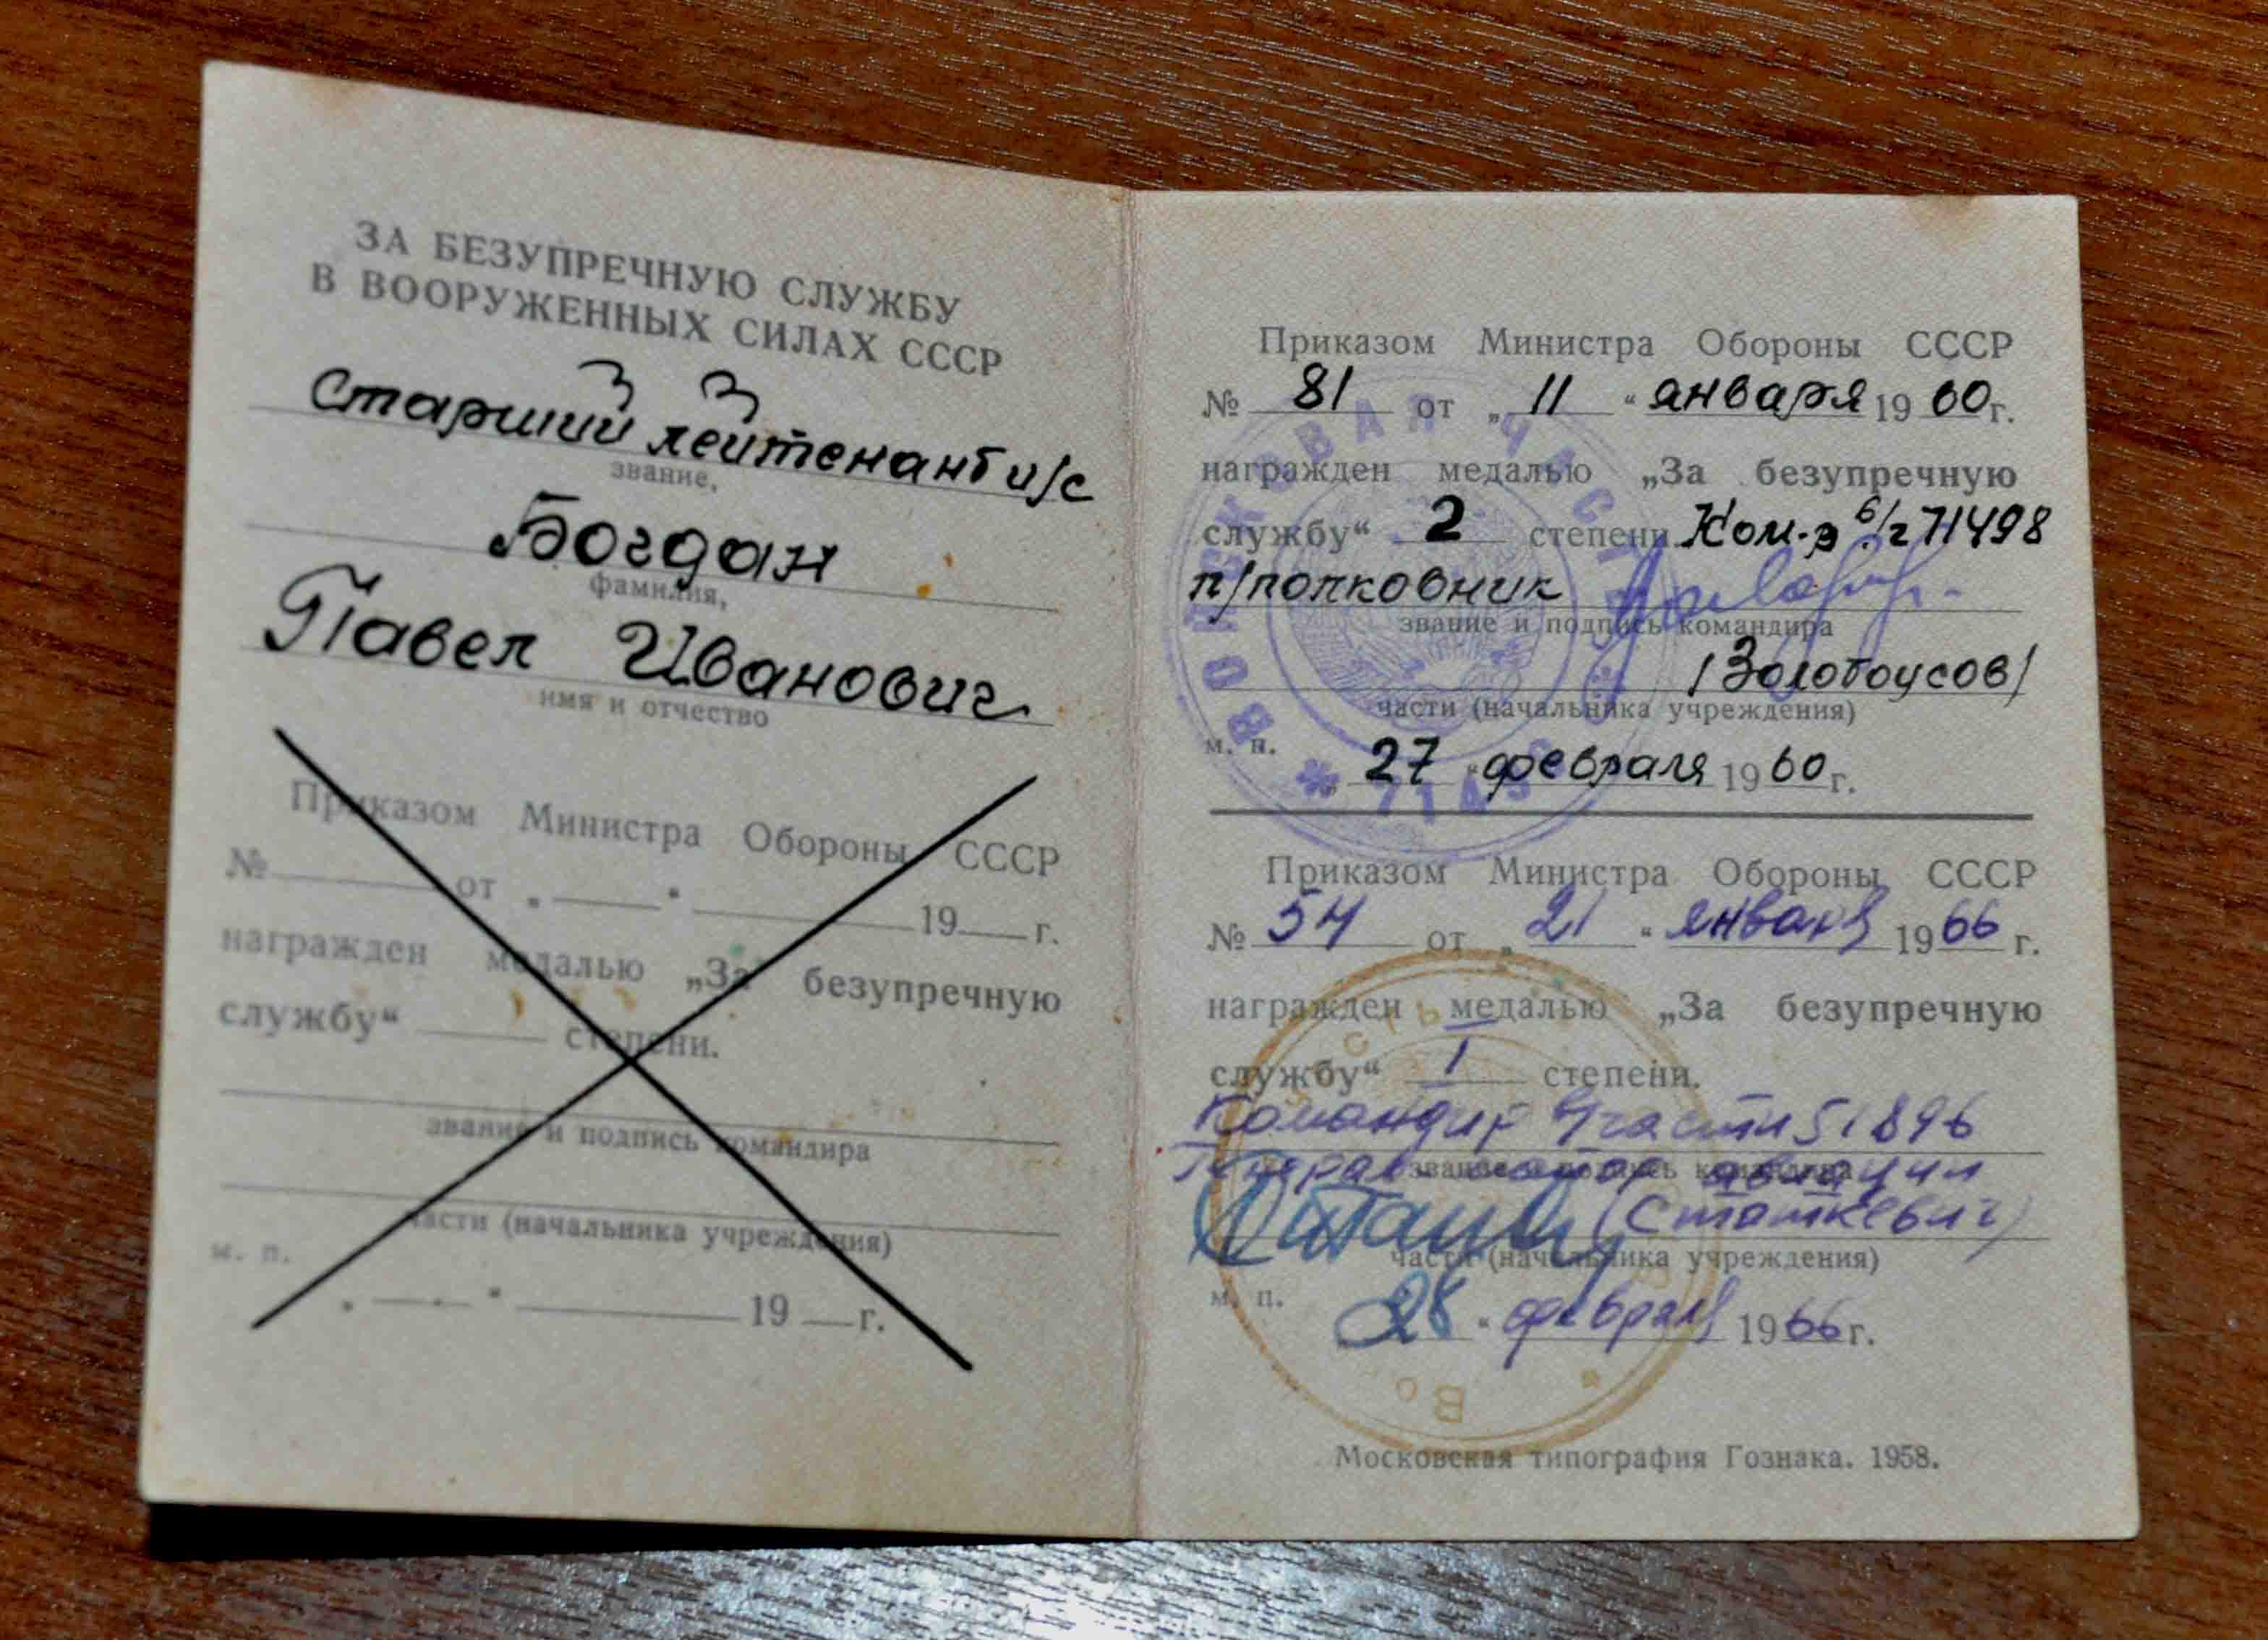 ЗА БЕЗУПРЕЧНУЮ СЛУЖБУ
В ВООРУЖЕННЫХ СИЛАХ СССР
Старший лейтенант и/с
звание,
Богдан
фамилия,
Павел Иванович
имя и отчество
Приказом Министра Обороны СССР
№ от „ “ 19 г.
награжден медалью „За безупречную
службу“ степени.
звание и подпись командира
части (начальника учреждения)
м. п.
„ “ 19 г.
Приказом Министра Обороны СССР
№ 81 от „11“ января 1960 г.
награжден медалью „За безупречную
службу“ 2 степени. Ком-р в/ч 71498
п/полковник
звание и подпись командира
/Золотоусов/
части (начальника учреждения)
м. п.
„27“ февраля 1960 г.
ВОЙСКОВАЯ ЧАСТЬ * 71498 *
Приказом Министра Обороны СССР
№ 54 от „21“ января 1966 г.
награжден медалью „За безупречную
службу“ I степени.
Командир в/части 51896
звание и подпись командира
Генерал-майор авиации
(Статкевич)
части (начальника учреждения)
м. п.
„28“ февраля 1966 г.
Московская типография Гознака. 1958.